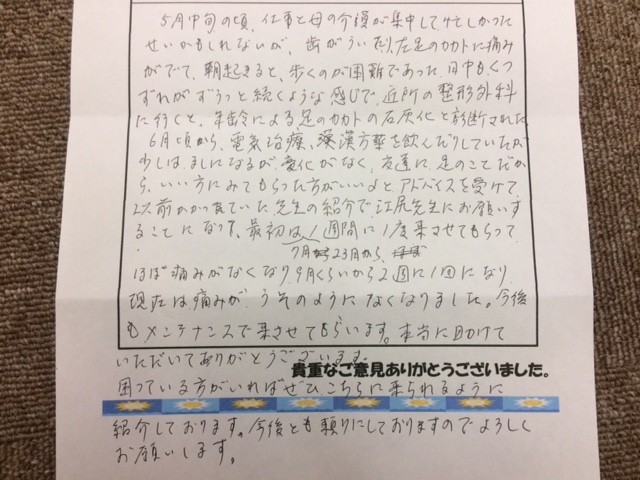 5月中旬の頃、仕事と母の介護が集中して忙しかった
せいかもしれないが、歯がういたり、左足のカカトに痛み
がでて、朝起きると、歩くのが困難であった。日中もくつ
ずれがずうっと続くような感じで、近所の整形外科
に行くと、年齢による足のカカトの石灰化と診断された
6月頃から、電気治療、漢方薬を飲んだりしていたが
少しは、ましになるが、変化がなく、友達に、足のことだか
ら、いい方にみてもらった方がいいよと、アドバイスを受けて、
以前かかっていた先生の紹介で江尻先生にお願いす
ることになって、最初は、1週間に1度来させてもらって
7月23日から、
ほぼ痛みがなくなり、9月くらいから2週に1回になり
現在は痛みが、うそのようになくなりました。今後
もメンテナンスで来させてもらいます。本当に助けて
いただいてありがとうございます。
貴重なご意見ありがとうございました。
困っている方がいればぜひこちらに来られるように
紹介しております。今後とも頼りにしておりますのでよろしく
お願いします。